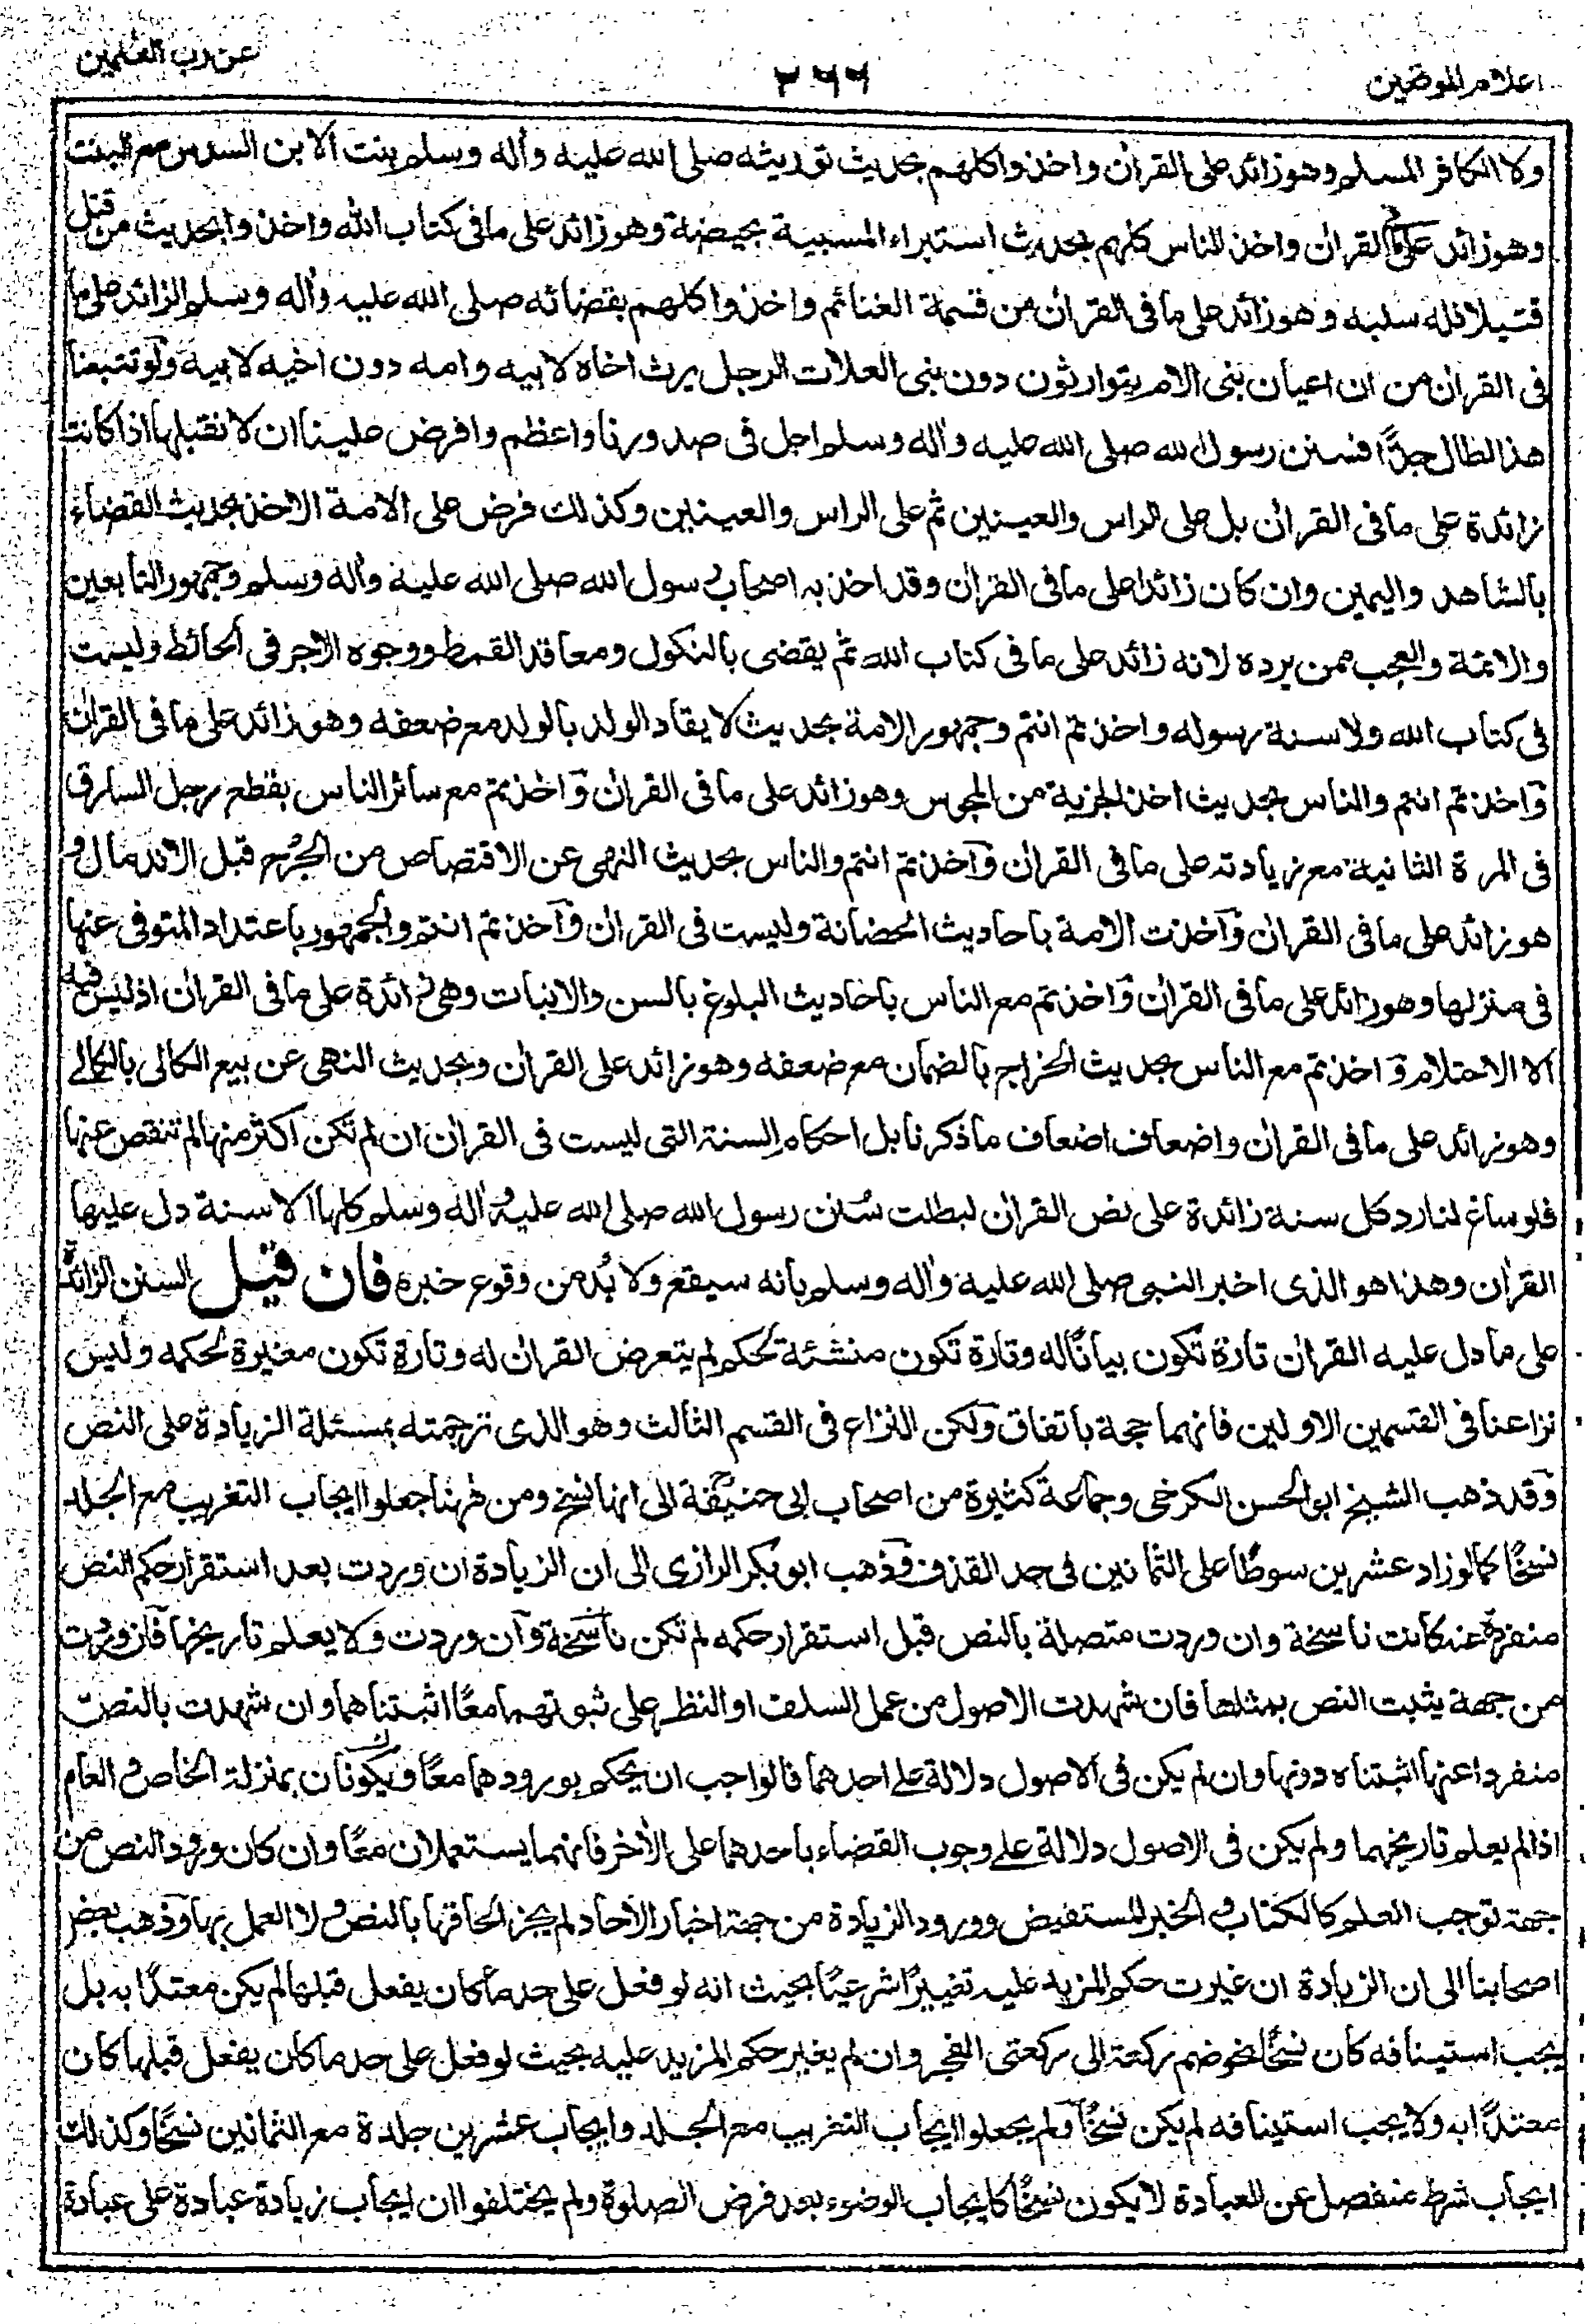 اعلام الموقعين
٢٦٦
عن رب العلمين
ولا الكافر المسلم وهو زائد على القرآن واخذوا كلهم بحديث توريثه صلى الله عليه وأله وسلم بنت الابن السدس مع البنت
وهو زائد على ما فى القرآن واخذ الناس كلهم بحديث استبراء المسبية بحيضة وهو زائد على ما فى كتاب الله واخذوا بحديث من قتل
قتيلا فله سلبه وهو زائد على ما فى القرآن من قسمة الغنائم واخذوا كلهم بقضائه صلى الله عليه وأله وسلم الزائد على ما
فى القرآن من ان اعيان بنى الام يتوارثون دون بنى العلات الرجل يرث اخاه لابيه وامه دون اخيه لابيه ولو تتبعنا
هذا لطال جدًّا فسنن رسول الله صلى الله عليه وأله وسلم اجل فى صدورنا واعظم وافرض علينا ان لا نقبلها اذا كانت
زائدة على ما فى القرآن بل على الراس والعينين ثم على الراس والعينين وكذلك فرض على الامة الاخذ بحديث القضاء
بالشاهد واليمين وان كان زائدا على ما فى القرآن وقد اخذ به اصحاب رسول الله صلى الله عليه وأله وسلم وجمهور التابعين
والائمة والعجب ممن يرده لانه زائد على ما فى كتاب الله ثم يقضى بالنكول ومعاقد القمط ووجوه الاجر فى الحائط وليست
فى كتاب الله ولا سنة رسوله واخذتم انتم وجمهور الامة بحديث لا يقاد الوالد بالولد مع ضعفه وهو زائد على ما فى القرآن
واخذتم انتم والناس بحديث اخذ الجزية من المجوس وهو زائد على ما فى القرآن واخذتم مع سائر الناس بقطع رجل السارق
فى المرة الثانية مع زيادته على ما فى القرآن واخذتم انتم والناس بحديث النهى عن الاقتصاص من الجرح قبل الاندمال و
هو زائد على ما فى القرآن واخذت الامة باحاديث الحضانة وليست فى القرآن واخذتم انتم والجمهور باعتداد المتوفى عنها
فى منزلها وهو زائد على ما فى القرآن واخذتم مع الناس باحاديث البلوغ بالسن والانبات وهى زائدة على ما فى القرآن اذ ليس فيه
الا الاحتلام واخذتم مع الناس بحديث الخراج بالضمان مع ضعفه وهو زائد على القرآن وبحديث النهى عن بيع الكالى بالكالى
وهو زائد على ما فى القرآن واضعاف اضعاف ما ذكرنا بل احكام السنة التى ليست فى القرآن ان لم تكن اكثر منها لم تنقص عنها
فلو ساغ لنا رد كل سنة زائدة على نص القرآن لبطلت سنن رسول الله صلى الله عليه وأله وسلم كلها الا سنة دل عليها
القرآن وهذا هو الذى اخبر النبى صلى الله عليه وأله وسلم بانه سيقع ولا بُد من وقوع خبره فان قيل السنن الزائدة
على ما دل عليه القرآن تارة تكون بيانًا له وتارة تكون منشئة لحكم لم يتعرض القرآن له وتارة تكون مغيرة لحكمه وليس
نزاعنا فى القسمين الاولين فانهما حجة باتفاق ولكن النزاع فى القسم الثالث وهو الذى ترجمته بمسئلة الزيادة على النص
وقد ذهب الشيخ ابو الحسن الكرخى وجماعة كثيرة من اصحاب ابى حنيفة الى انها نسخ ومن ههنا جعلوا ايجاب التغريب مع الجلد
نسخًا كما لو زاد عشرين سوطًا على الثمانين فى حد القذف وذهب ابو بكر الرازى الى ان الزيادة ان وردت بعد استقرار حكم النص
منفردة عنه كانت ناسخة وان وردت متصلة بالنص قبل استقرار حكمه لم تكن ناسخة وان وردت ولا يعلم تاريخها فان وردت
من جهة يثبت النص بمثلها فان شهدت الاصول من عمل السلف او النظر على ثبوتهما معًا اثبتناهما وان شهدت بالنص
منفردا عنها اثبتناه دونها وان لم يكن فى الاصول دلالة على احدهما فالواجب ان يحكم بورودهما معًا ويكونان بمنزلة الخاص والعام
اذا لم يعلم تاريخهما ولم يكن فى الاصول دلالة على وجوب القضاء باحدهما على الأخر فانهما يستعملان معًا وان كان ورود النص من
جهة توجب العلم كالكتاب والخبر المستفيض وورود الزيادة من جهة اخبار الأحاد لم يجز الحاقها بالنص ولا العمل بها وذهب بعض
اصحابنا الى ان الزيادة ان غيرت حكم المزيد عليه تغييرًا شرعيًا بحيث انه لو فعل على حد ما كان يفعل قبلها لم يكن معتدًا به بل
يجب استينافه كان نسخًا نحو ضم ركعة الى ركعتى الفجر وان لم يغير حكم المزيد عليه بحيث لو فعل على حد ما كان يفعل قبلها كان
معتدًا به ولا يجب استينافه لم يكن نسخًا ولم يجعلوا ايجاب التغريب مع الجلد وايجاب عشرين جلدة مع الثمانين نسخًا وكذلك
ايجاب شرط منفصل عن العبادة لا يكون نسخًا كايجاب الوضوء بعد فرض الصلوة ولم يختلفوا ان ايجاب زيادة عبادة على عبادة